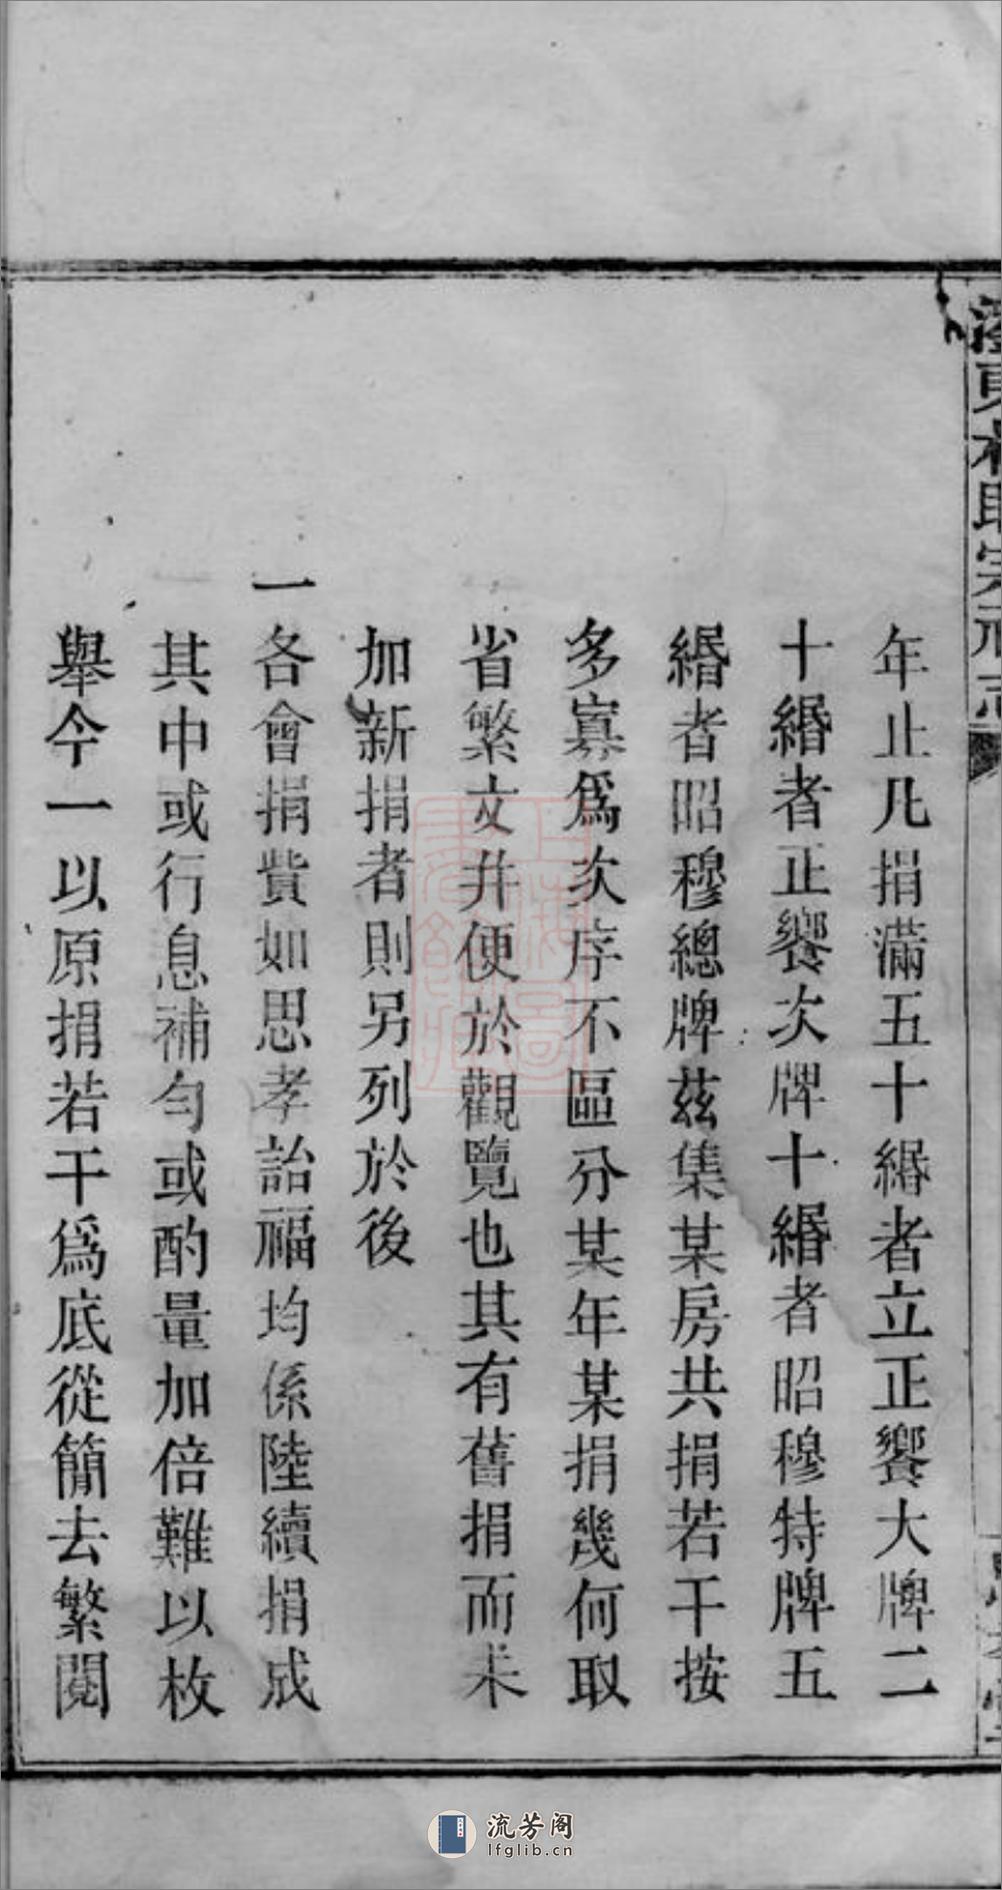 年止凡捐滿五十緡者立正饗大牌二
十緡者正饗次牌十緡者昭穆特牌五
緡者昭穆總牌茲集某房共捐若干按
多寡爲次序不區分某年某捐幾何取
省繁文幷便於觀覽也其有舊捐而未
加新捐者則另列於後
一各會捐貲如思孝詒福均係陸續捐成
其中或行息補勻或酌量加倍難以枚
舉今一以原捐若干爲底從簡去繁閱
流芳阁
lfglib.cn